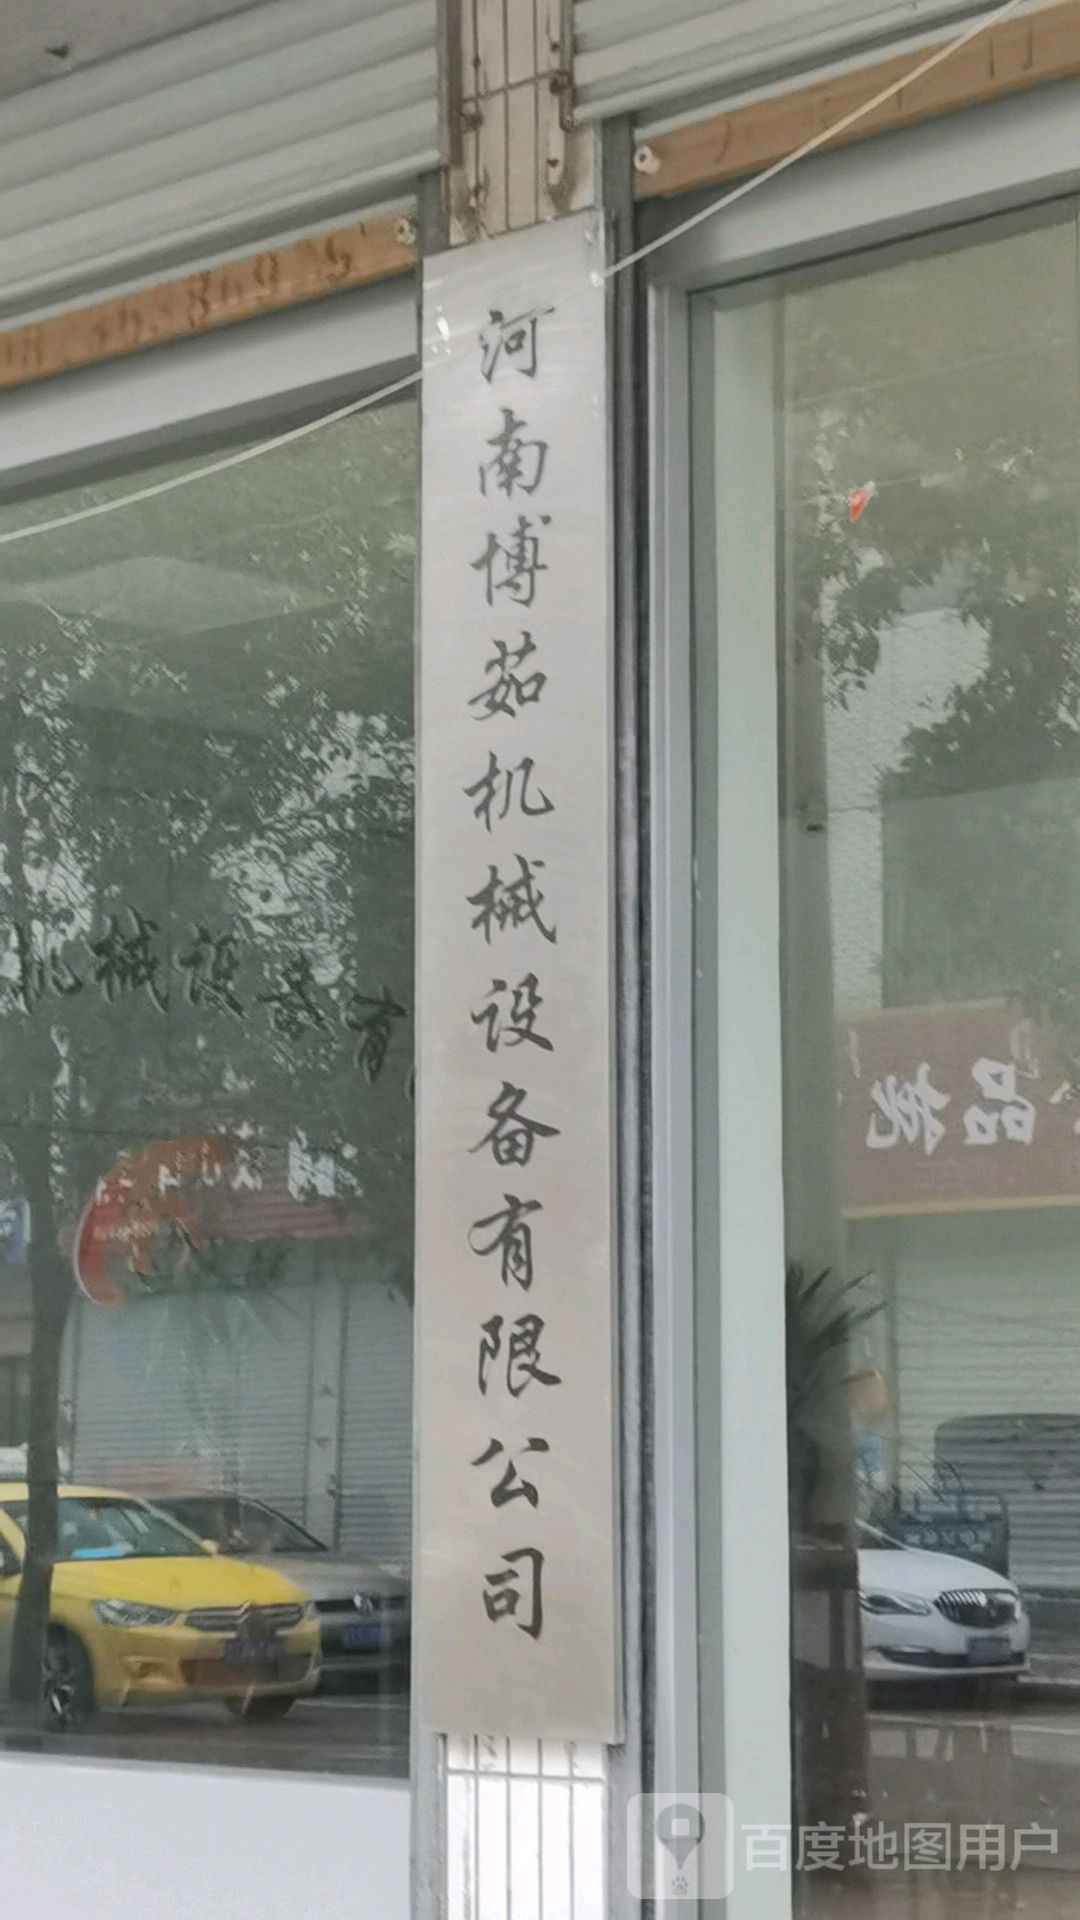 河南博茹机械设备有限公司
机械设备有
百度地图用户